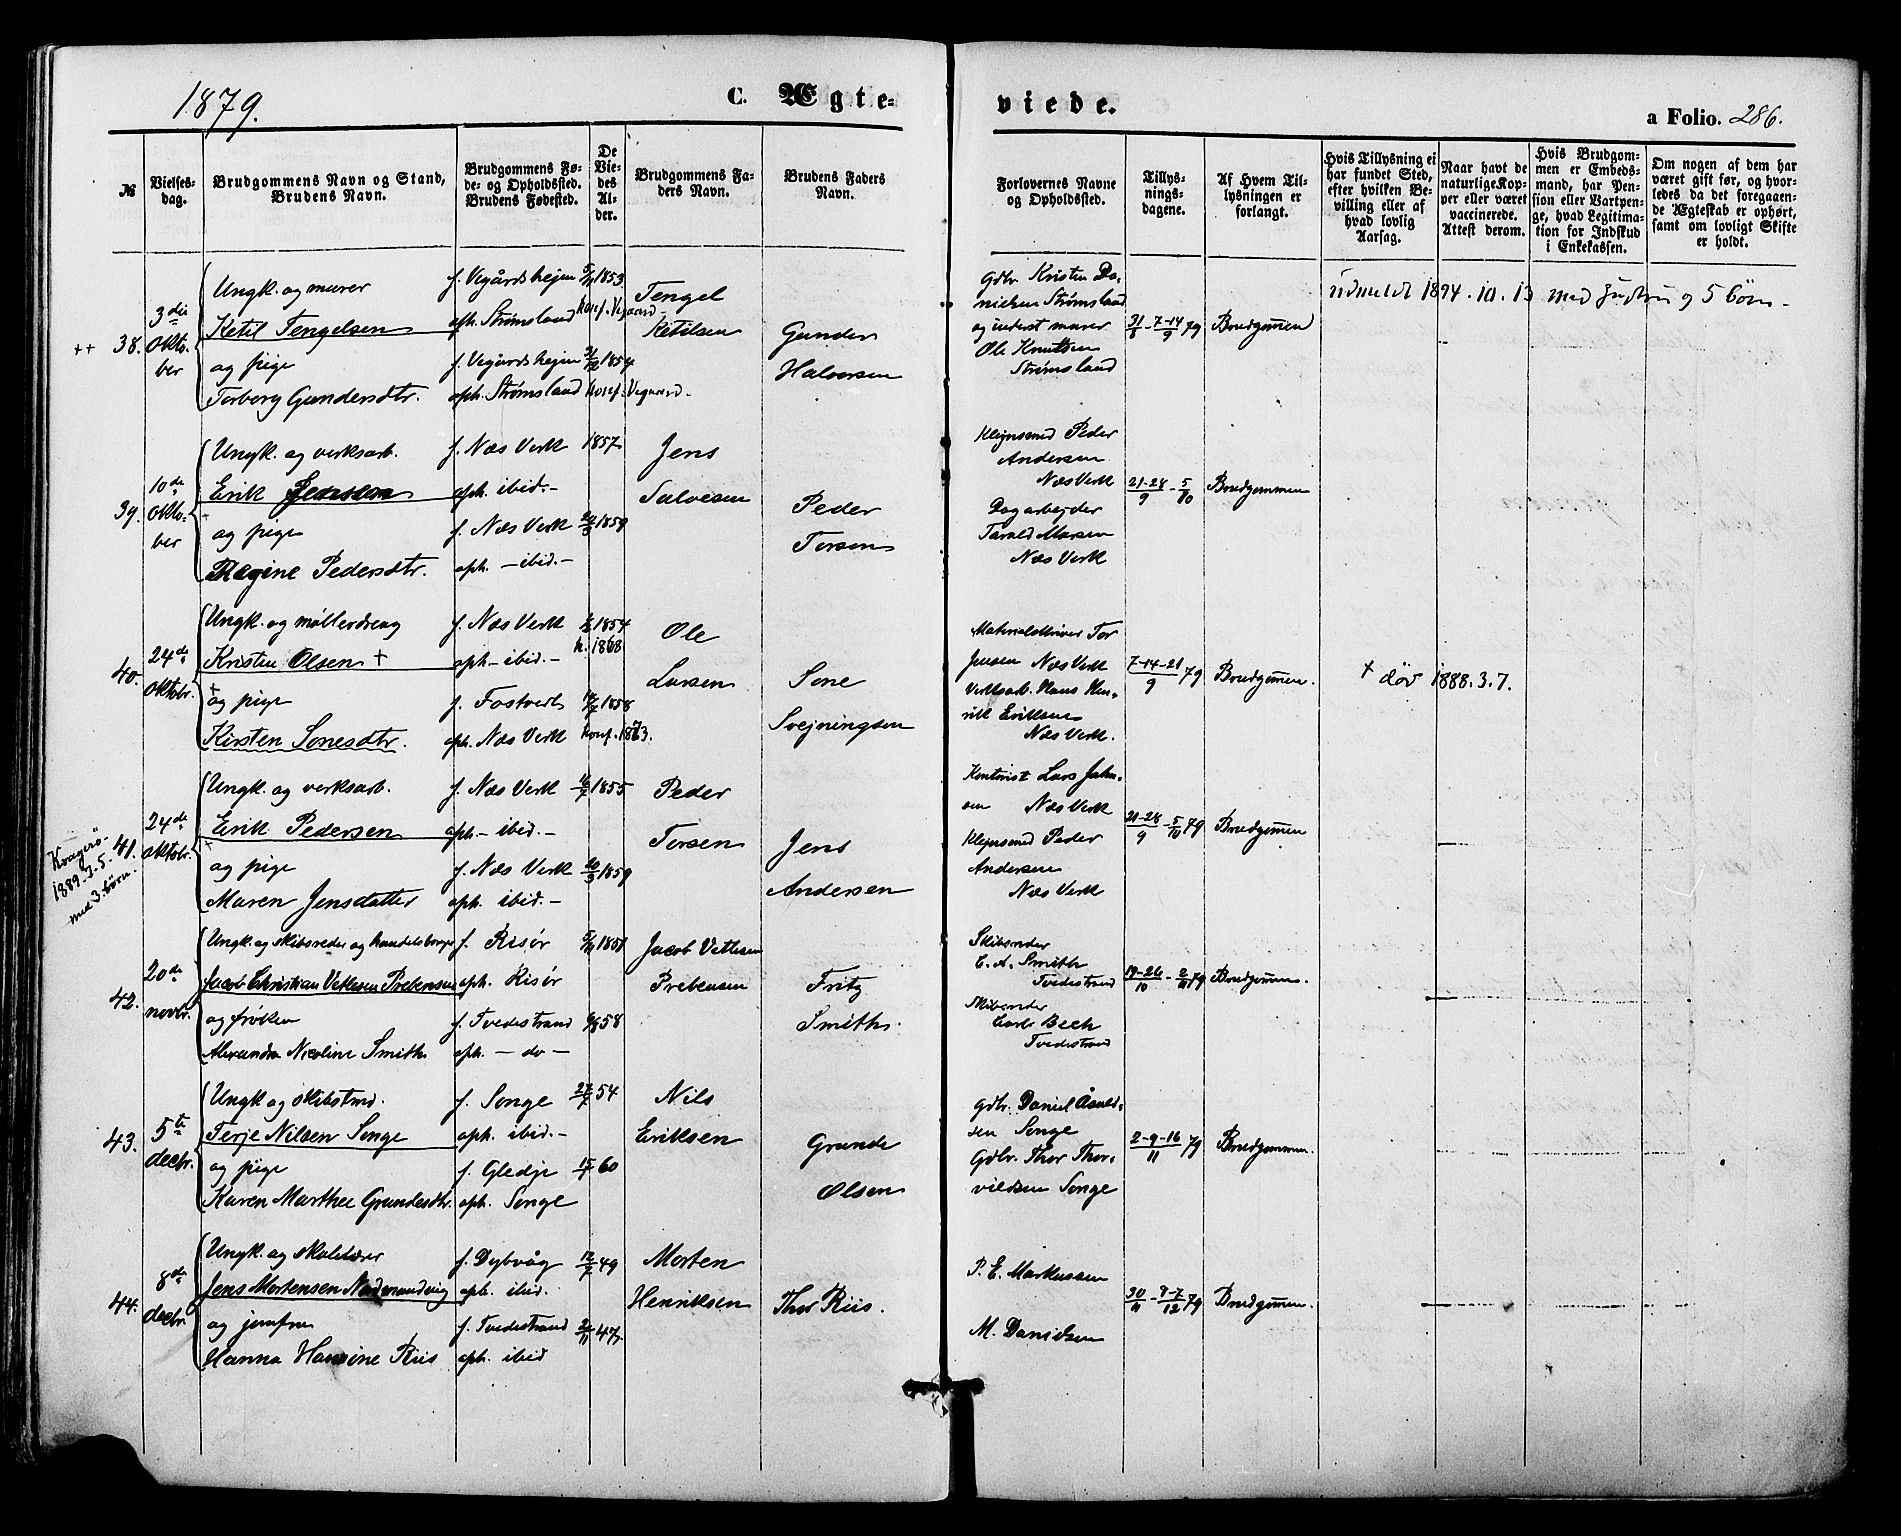 1879.
C. Ægte-
viede.
a Folio. 286.
№
Vielses-
dag.
Brudgommens Navn og Stand,
Brudens Navn.
Brudgommens Fø-
de- og Opholdssted.
Brudens Fødested.
De
Vie-
des
Al-
der.
Brudgommens Fa-
ders Navn.
Brudens Faders
Navn.
Forlovernes Navne
og Opholdssted.
Tillys-
nings-
dagene.
Af Hvem Til-
lysningen er
forlangt.
Hvis Tillysning ei
har fundet Sted,
efter hvilken Be-
villing eller af
hvad lovlig
Aarsag.
Naar havt de
naturlige Kop-
per eller været
vaccinerede.
Attest derom.
Hvis Brudgom-
men er Embeds-
mand, har Pen-
sion eller Vartpen-
ge, hvad Legitima-
tion for Indskud
i Enkekassen.
Om nogen af dem har
været gift før, og hvor-
ledes da det foregaaen-
de Ægteskab er ophørt,
samt om lovligt Skifte
er holdt.
++ 38.
3die
Okto-
ber
Ungk. og murer
Ketil Tengelsen
og pige
Torborg Gundersdtr.
f. Vegårdshejen
oph. Strømsland
f. Vegårdshejen
oph. Strømsland
5/7 1853
konf. Vegaard-
1854
konf. Vegaard-
Tengel
Ketilsen
Gunder
Halvorsen
Gdbr. Kristen Da-
nielsen Strømsland
og inderst murer
Ole Knutsen
Strømsland
31/8 - 7-14/9 79
Brudgommen
Udmeldt 1894.10.13 med hustru og 5 børn-
39.
10de
Okto-
ber
Ungk. og verksarb.
Erik Jensen
og pige
Regine Pedersdtr.
f. Næs Verk
oph. ibid.-
f. Næs Verk
oph. - ibid.-
1857
20/3 1859
Jens
Salvesen
Peder
Torsen
Klejnsmed Peder
Andersen
Næs Verk
Dagarbejder
Tarald Larsen
Næs Verk
21-28/9 - 5/10
Brudgommen
40.
24de
oktobr.
Ungk. og møllerdreng
Kristen Olsen +
og pige
Kirsten Sonesdtr.
f. Næs Verk
oph - ibid.-
f. Fostvedt
oph. Næs Verk
1854
k. 1868
14/7 1858
konf. 1873.
Ole
Larsen
Sone
Svejningsen
Materialskriver Tor
Jensen Næs Verk
Verksarb. Hans Hen-
rik Eriksen
Næs Verk.
7-14-21/9 79
Brudgommen.
+ døv 1888.3.7.
Kragerö
1889.7.5.
med 3 börn.
41.
24de
oktobr.
Ungk. og verksarb.
Erik Pedersen
og pige
Maren Jensdatter
f. Næs Verk
oph - ibid.-
f. Næs Verk
oph. ibid.-
16/7 1855
20/3 1859
Peder
Torsen
Jens
Andersen
Kontorist Lars Jahn-
sen Næs Verk
Klejnsmed Peder
Andersen
Næs Verk
21-28/9 - 5/10 79
Brudgommen
42.
20de
novbr.
Ungk. og skibsreder og handelsborger
Jacob Christian Vetlesen Prebensen
og frøken
Alexandra Nicoline Smith
f. Risør
oph. Risør
f. Tvedestrand
oph. - do -
5/11 1851
6/8 58
Jacob Vetlesen
Prebensen
Fritz
Smith.
Skibsreder
C. A. Smith
Tvedestrand
Skibsreder
Carl Bech
Tvedestrand
19-26/10 - 2/11 79
Brudgommen.
43.
5te
decbr.
Ungk og skibstmd.
Terje Nilsen Songe
og pige
Karen Marthea Grundesdtr.
f. Songe
oph. ibid.-
f. Gledje
oph. Songe
27/7 54
15/7 60
Nils
Eriksen
Grunde
Olsen
Gdbr. Daniel Åsuld-
sen Songe
Gdbr. Thor Thor-
vildsen Songe
2-9-16/11 79
Brudgommen.
44.
8de
decbr
Ungk. og skolelærer
Jens Mortensen
og jomfru
Hanna Hansine Riis
f. Dybvåg
oph. ibid.
f. Tvedestrand
oph. ibid
12/7 49
2/11 47.
Morten
Henriksen
Thor Riis.
P. E. Markussen
M. Danielsen
30/11 - 7/12 79
Brudgommen.